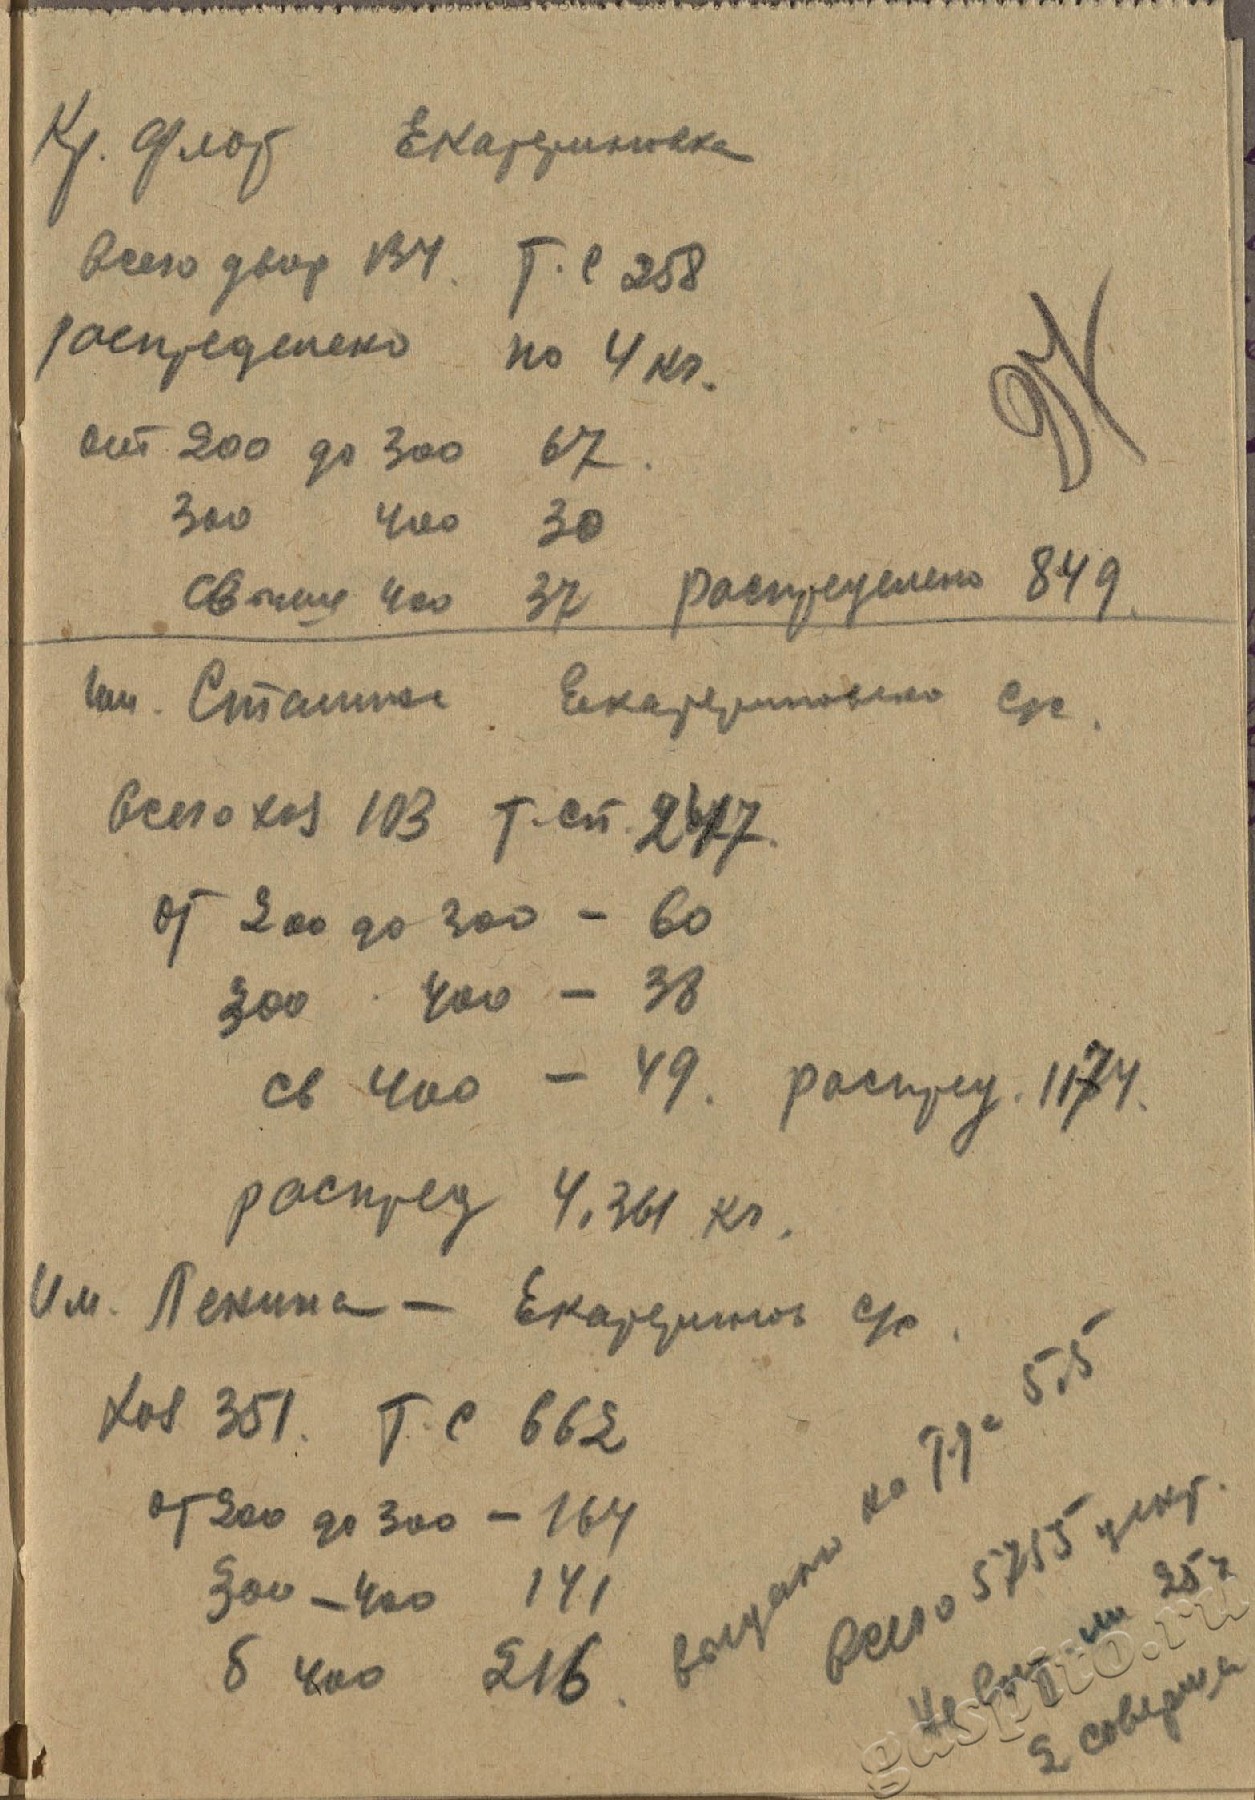 Кр. Флот Екатериновка
Всего двор 134. Т. С 258
распределено по 4 кг.
от 200 до 300 67.
300 400 30
свыше 400 37 распределено 849.
Им. Сталина Екатериновка с/с.
Всего хоз 103 Т. сп.
от 200 до 300 – 60
300 400 – 38
св 400 – 49. распред. 1174.
распред 4.361 кг.
Им. Ленина – Екатеринов с/с.
Хоз 351. Т. С 662
от 200 до 300 – 164
300 – 400 141
б 400 216.
выдано на 5,5
Всего 5715 цент.
25
2
gaspito.ru